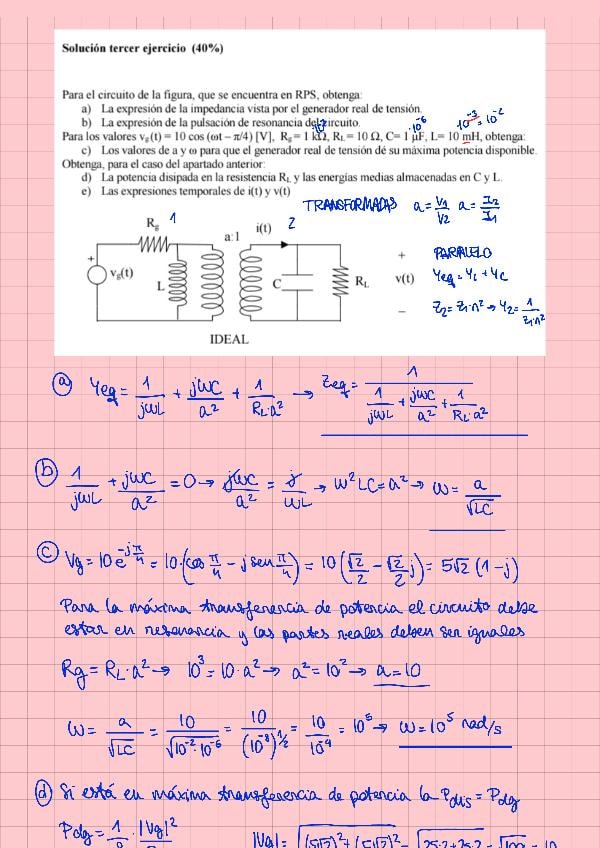 Solución tercer ejercicio (40%)
Para el circuito de la figura, que se encuentra en RPS, obtenga:
a) La expresión de la impedancia vista por el generador real de tensión.
b) La expresión de la pulsación de resonancia del circuito.
Para los valores vg(t) = 10 cos (ωt – π/4) [V], Rg = 1 kΩ, RL= 10 Ω, C= 1 μF, L= 10 mH, obtenga:
·10⁻⁶
10·10⁻³=10⁻²
c) Los valores de a y ω para que el generador real de tensión dé su máxima potencia disponible.
Obtenga, para el caso del apartado anterior:
d) La potencia disipada en la resistencia RL y las energías medias almacenadas en C y L.
e) Las expresiones temporales de i(t) y v(t)
TRANSFORMADAS a = V1/V2 a = I2/I1
Rg 1 a:1 i(t) 2
+ PARALELO
+ vg(t) L C RL v(t) Yeq = YL + YC
– Z2 = Z1·n² → Y2 = 1/(Z1·n²)
IDEAL
a) Yeq = 1/(jωL) + jωC/a² + 1/(RL·a²) → Zeq = 1/(1/(jωL) + jωC/a² + 1/(RL·a²))
b) 1/(jωL) + jωC/a² = 0 → jωC/a² = j/(ωL) → ω²LC = a² → ω = a/√LC
c) Vg = 10 e^(-jπ/4) = 10·(cos π/4 - j sen π/4) = 10(√2/2 - √2/2 j) = 5√2 (1-j)
Para la máxima transferencia de potencia el circuito debe
estar en resonancia y las partes reales deben ser iguales
Rg = RL·a² → 10³ = 10·a² → a² = 10² → a = 10
ω = a/√LC = 10/√(10⁻²·10⁻⁶) = 10/(10⁻⁸)^(1/2) = 10/10⁻⁴ = 10⁵ → ω = 10⁵ rad/s
d) Si está en máxima transferencia de potencia la Pdis = Pdg